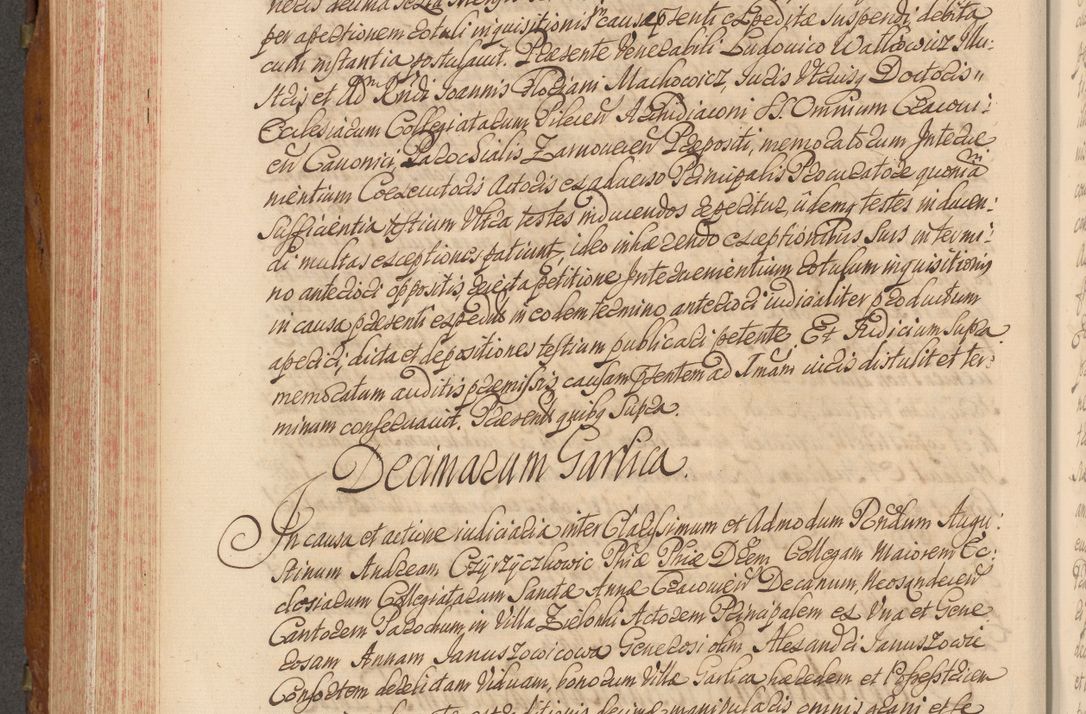 per apertionem rotuli inquisitionis in causa pñsenti expeditæ suspendi, debita
cum instantia postulavit. Præsente Venerabili Ludovico Walkowicz Illu:
stris et Adm Rñdi Joannis Floriani Machowicz, Juris Utriusq Doctoris
Ecclesiarum Collegiatarum Pilecen Archidiaconi SS. Omnium Cracovi:
en Canonici, Parochialis Zarnovecen Præpositi, memoratorum Interve
nientium Coexecutoris Actoris ex adverso Principalis Procuratore quoniã
sufficientia testium Ultra testes inducendos repetitur, iidemq testes inducen:
di multas exceptiones patiunt, ideo inhærendo exceptionibus suis in termi:
no anteriori oppositis, rejecta petitione Intervenientium rotulum inquisitionis
in causa præsenti expedit: in eodem termino anteriori judicialiter productum
aperiri, dicta et depositiones testium publicari petente. Et Judicium supra
memoratum auditis præmissis causam pñsentem ad Imam juris distulit et ter:
minum conservavit. Præsent: quibq supra.
Decimarum Garlica.
In causa et actione judiciaria inter Clarissimum et Admodum Rñdum Augu:
stinum Andream Czyrzyczkowic Phiæ Drem, Collegam Maiorem Ec:
clesiarum Collegiatarum Sanctæ Annæ Cracovien Decanum, Neosandecen
Cantorem Parochum, in Villa Zielonki Actorem Principalem ex Una et Gene
rosam Annam Januszowicowa Generosi olim Alexandri Januszowic
Consortem derelictam Viduam, bonorum Villæ Garlica hæredem et Possessricem